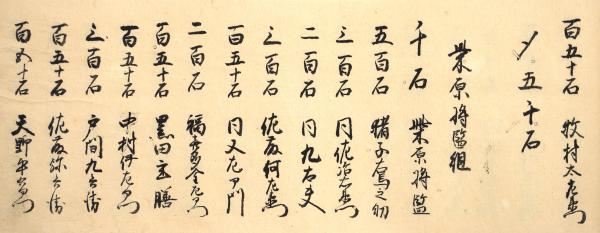 百五十石 牧村太左衛門
〆五千石
柴原将監組
千石 柴原将監
五百石 猪子
三百石 同佐治右衛門
二百石 同九太夫
三百石 佐藤何右衛門
百五十石 同又左衛門
二百石 福
百五十石 黒田主膳
百五十石 中村伊左衛門
三百石 戸間九兵衛
百五十石 佐藤弥兵衛
百五十石 天野平右衛門